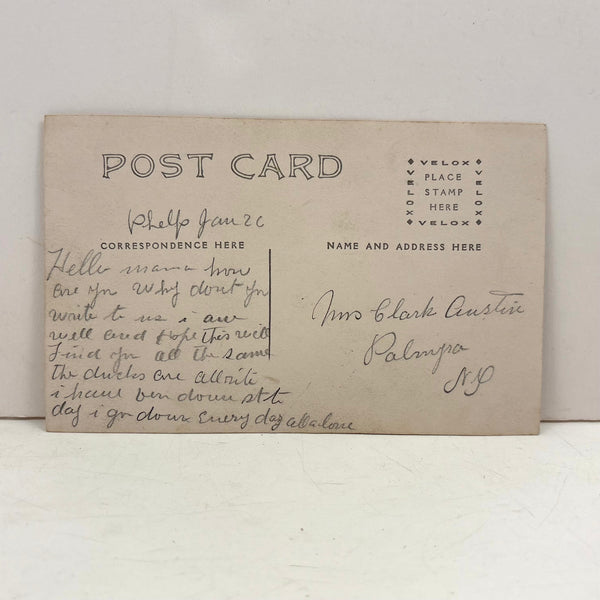 POST CARD
VELOX
VELOX
PLACE
STAMP
HERE
VELOX
VELOX
Phelp Jan 26
CORRESPONDENCE HERE
NAME AND ADDRESS HERE
Hello mama how
are yu Why dont yu
write to us i am
well and hope this will
Find yu all the same
the ducks are allrite
i have ben down st to
day i go down Every day all alone
Mrs Clark Austin
Palmyra
NY